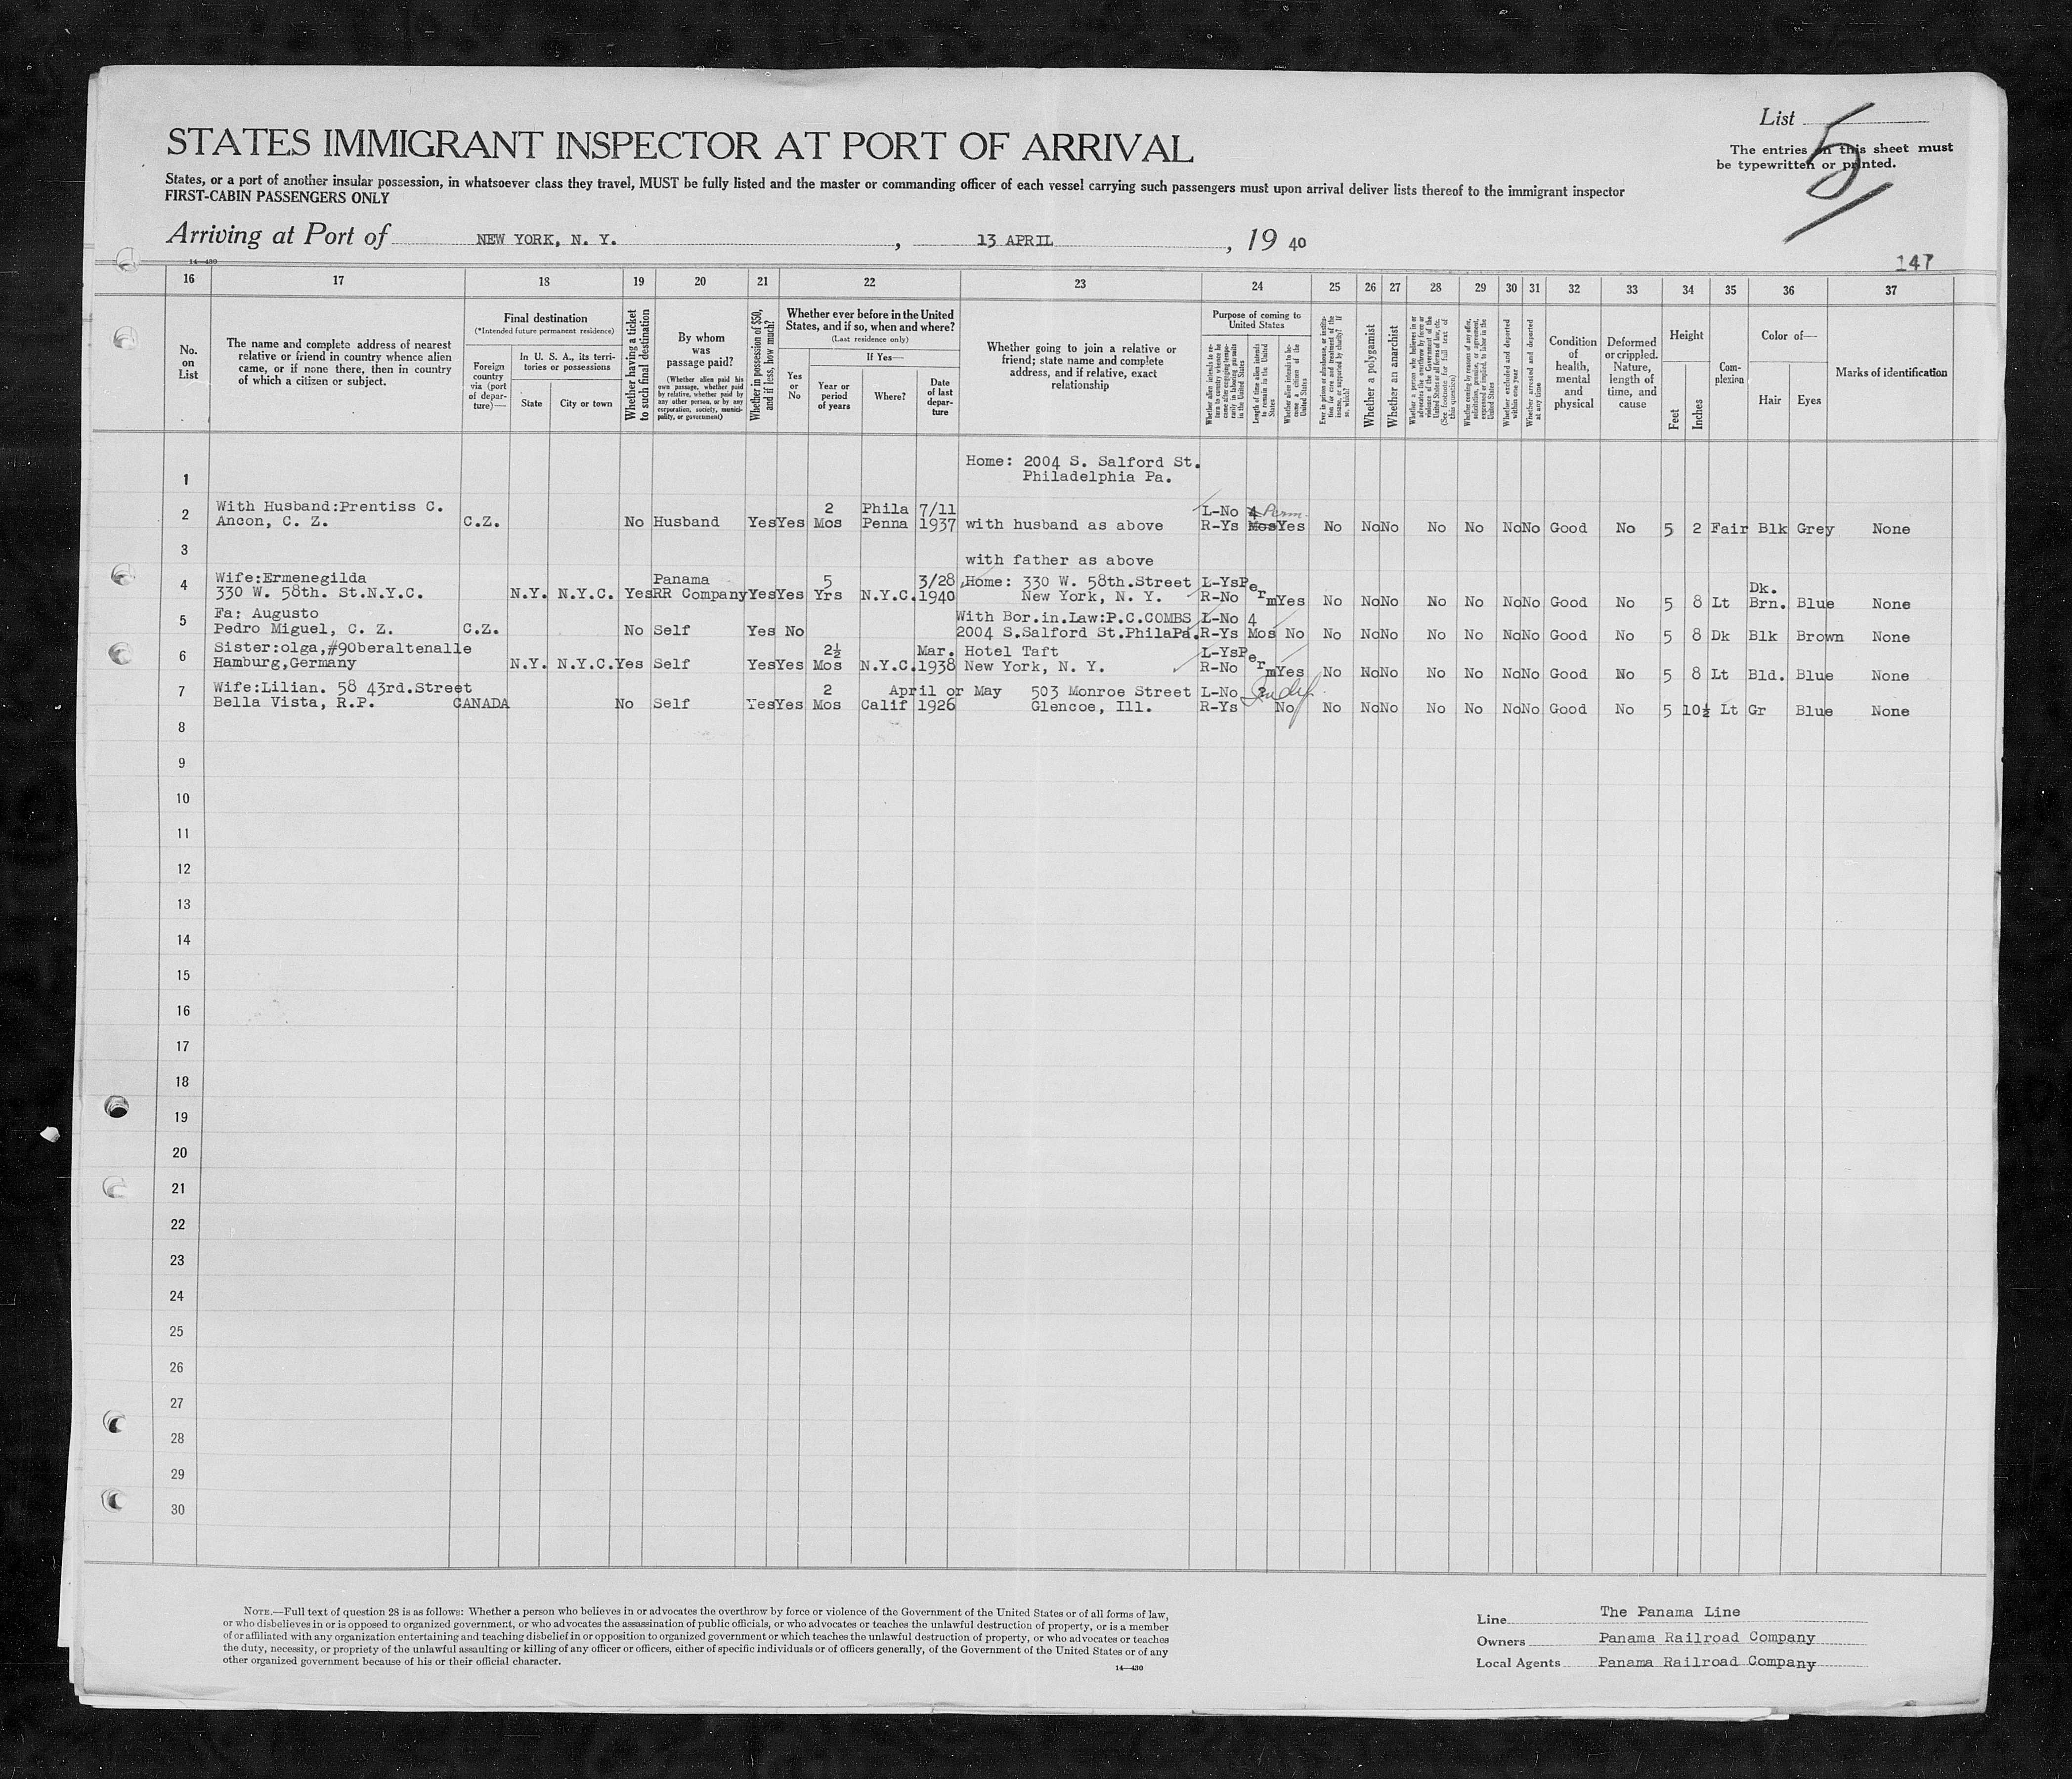 List 5
The entries on this sheet must
be typewritten or printed.
STATES IMMIGRANT INSPECTOR AT PORT OF ARRIVAL
States, or a port of another insular possession, in whatsoever class they travel, MUST be fully listed and the master or commanding officer of each vessel carrying such passengers must upon arrival deliver lists thereof to the immigrant inspector
FIRST-CABIN PASSENGERS ONLY
Arriving at Port of NEW YORK, N. Y. , 13 APRIL , 19 40
14—430
147
16 17 18 19 20 21 22 23 24 25 26 27 28 29 30 31 32 33 34 35 36 37
No. on List
The name and complete address of nearest relative or friend in country whence alien came, or if none there, then in country of which a citizen or subject.
Final destination
(*Intended future permanent residence)
Foreign country via (port of departure)—
In U. S. A., its territories or possessions
State
City or town
Whether having a ticket to such final destination
By whom was passage paid?
(Whether alien paid his own passage, whether paid by relative, whether paid by any other person, or by any corporation, society, municipality, or government)
Whether in possession of $50, and if less, how much?
Whether ever before in the United States, and if so, when and where?
(Last residence only)
Yes or No
If Yes—
Year or period of years
Where?
Date of last departure
Whether going to join a relative or friend; state name and complete address, and if relative, exact relationship
Purpose of coming to United States
Whether alien intends to return to country whence he came after engaging temporarily in laboring pursuits in the United States
Length of time alien intends to remain in the United States
Whether alien intends to become a citizen of the United States
Ever in prison or almshouse, or institution for care and treatment of the insane, or supported by charity? If so, which?
Whether a polygamist
Whether an anarchist
Whether a person who believes in or advocates the overthrow by force or violence of the Government of the United States or all forms of law, etc. (See footnote for full text of this question)
Whether coming by reason of any offer, solicitation, promise, or agreement, expressed or implied, to labor in the United States
Whether excluded and deported within one year
Whether arrested and deported at any time
Condition of health, mental and physical
Deformed or crippled. Nature, length of time, and cause
Height
Feet
Inches
Complexion
Color of—
Hair
Eyes
Marks of identification
Home: 2004 S. Salford St.
1 Philadelphia Pa.
With Husband:Prentiss C. 2 Phila 7/11 L-No 4 Perm.
2 Ancon, C. Z. C.Z. No Husband Yes Yes Mos Penna 1937 with husband as above R-Ys Mos Yes No No No No No No No Good No 5 2 Fair Blk Grey None
3 with father as above
Wife:Ermenegilda Panama 5 3/28 Home: 330 W. 58th.Street L-Ys Perm Dk.
4 330 W. 58th. St.N.Y.C. N.Y. N.Y.C. Yes RR Company Yes Yes Yrs N.Y.C. 1940 New York, N. Y. R-No Yes No No No No No No No Good No 5 8 Lt Brn. Blue None
Fa: Augusto With Bor.in.Law:P.C.COMBS L-No 4
5 Pedro Miguel, C. Z. C.Z. No Self Yes No 2004 S.Salford St.PhilaPa. R-Ys Mos No No No No No No No No Good No 5 8 Dk Blk Brown None
Sister:olga,#90beraltenalle 2½ Mar. Hotel Taft L-Ys Perm
6 Hamburg,Germany N.Y. N.Y.C. Yes Self Yes Yes Mos N.Y.C. 1938 New York, N. Y. R-No Yes No No No No No No No Good No 5 8 Lt Bld. Blue None
Wife:Lilian. 58 43rd.Street 2 April or May 503 Monroe Street L-No ? Indef.
7 Bella Vista, R.P. CANADA No Self Yes Yes Mos Calif 1926 Glencoe, Ill. R-Ys No No No No No No No No Good No 5 10½ Lt Gr Blue None
8
9
10
11
12
13
14
15
16
17
18
19
20
21
22
23
24
25
26
27
28
29
30
NOTE.—Full text of question 28 is as follows: Whether a person who believes in or advocates the overthrow by force or violence of the Government of the United States or of all forms of law,
or who disbelieves in or is opposed to organized government, or who advocates the assassination of public officials, or who advocates or teaches the unlawful destruction of property, or is a member
of or affiliated with any organization entertaining and teaching disbelief in or opposition to organized government or which teaches the unlawful destruction of property, or who advocates or teaches
the duty, necessity, or propriety of the unlawful assaulting or killing of any officer or officers, either of specific individuals or of officers generally, of the Government of the United States or of any
other organized government because of his or their official character.
14—430
Line The Panama Line
Owners Panama Railroad Company
Local Agents Panama Railroad Company